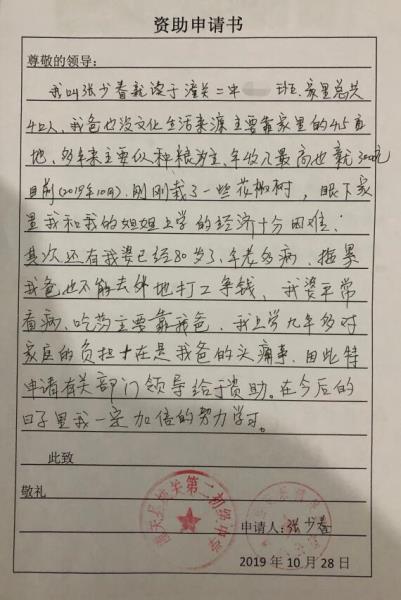 资助申请书
尊敬的领导:
我叫张少春就读于潼关二中 班,家里总共
4口人,我爸也没文化生活来源主要靠家里的4.5亩
地,多年来主要以种粮为主,年收入最高也就3000元
目前(2019年10月),刚刚栽了一些花椒树,眼下家
里我和我的姐姐上学的经济十分困难;
其次还有我婆已经80岁了,年老多病,拖累
我爸也不能去外地打工争钱,我婆平常
看病、吃药主要靠我爸,我上学九年多对
家庭的负担才在是我爸的头痛事,由此特
申请有关部门领导给于资助。在今后的
日子里我一定加倍的努力学习。
此致
敬礼
关第二初级中学
申请人:张少春
2019年10月28日